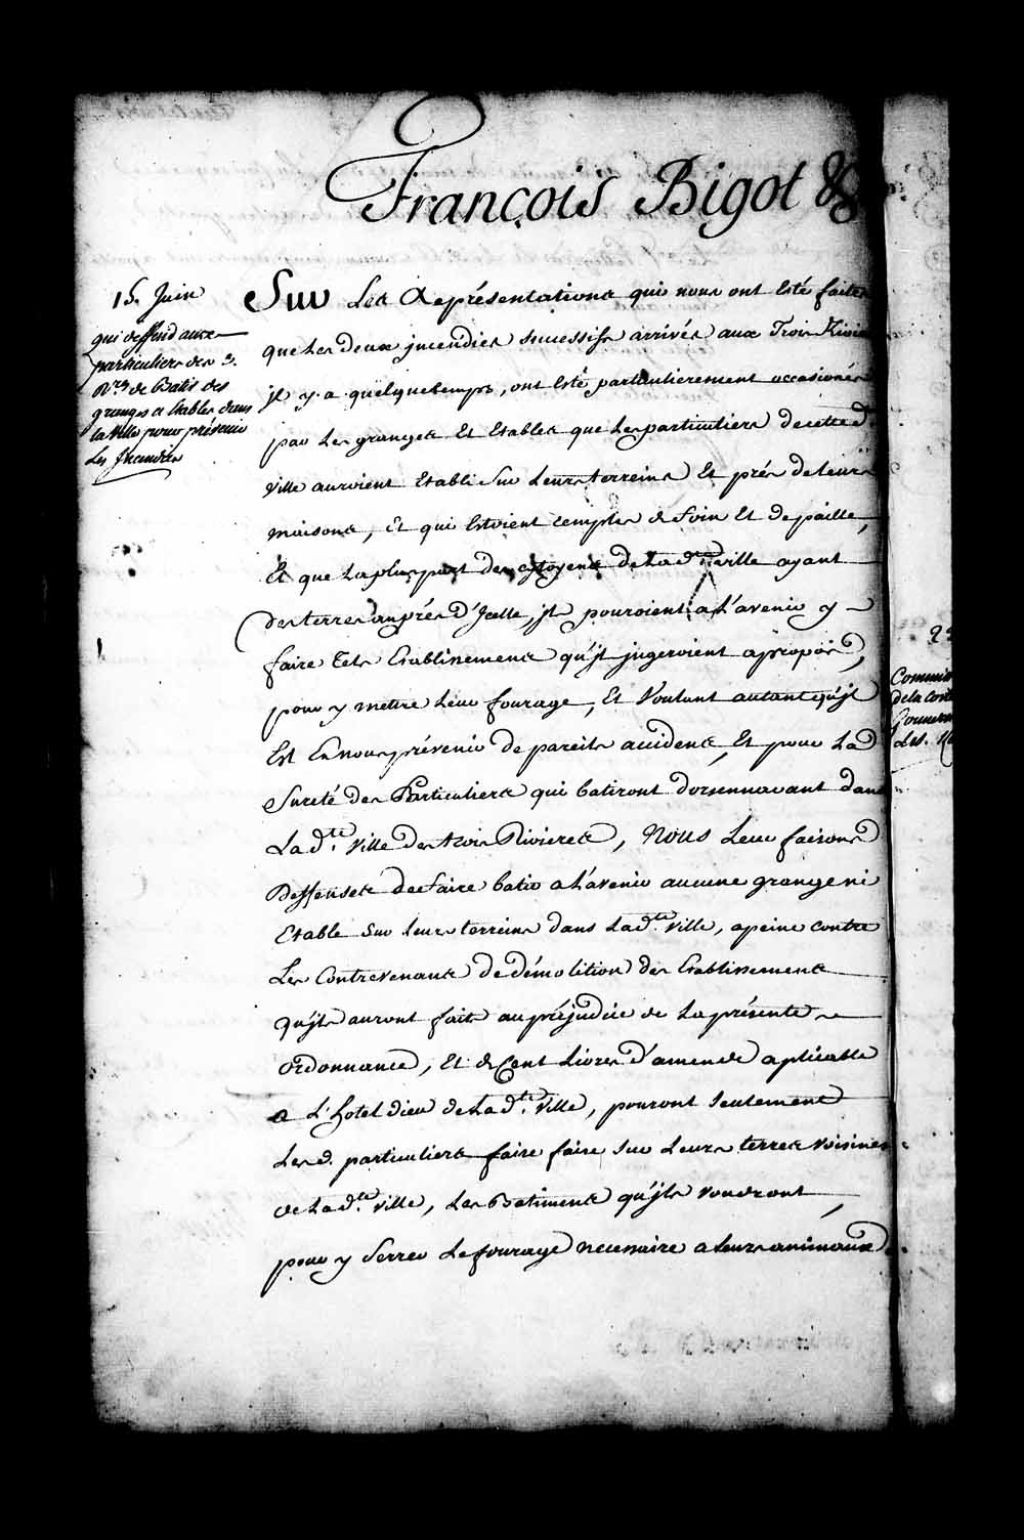 François Bigot &c
15. Juin
qui deffend aux
particuliers des 3.
Rres de Batir des
granges et Etables dans
la ville pour prévenir
Les Jncendies
Sur Les Représentations qui nous ont Eté faites
que Les deux jncendies successifs arrivés aux Trois Rivie
jl y a quelquetemps, ont Eté particulierement occasionés
par Les granges Et Etables que Les particuliers de cette d.
ville auroient Etabli Sur Leurs terreins Et prés de Leurs
maisons, Et qui Etoient remplis de foin Et de paille,
Et que La plus part des citoyens de La d. te ville ayant
des terres auprés d'Jcelle, jls pouroient a L'avenir y
faire tels Etablissements qu'jls jugeroient apropos,
pour y mettre Leur fourage, Et Voulant autant qu'jl
Est En nous prévenir de pareils accidents, Et pour La
Sureté des Particuliers qui batiront dorsennavant dans
La d.te Ville des trois Rivieres, Nous Leur faisons
Deffenses de faire batir a L'avenir aucune grange ni
Etable Sur Leurs terreins dans La d.te Ville, apeine contre
Les Contrevenants de démolition des Etablissements
qu'jls auront faits au préjudice de La présente
ordonnance, Et de Cent Livres d'amende aplicable
a L'hotel dieu de La d.te Ville, pouront Seulement
Les d. particuliers faire faire Sur Leurs terres voisines
de La d.te Ville, Les Batiments qu'jls voudront
pour y Serrer Le fourage necessaire a Leurs animaux
Commis
de la Cont
Gouvern